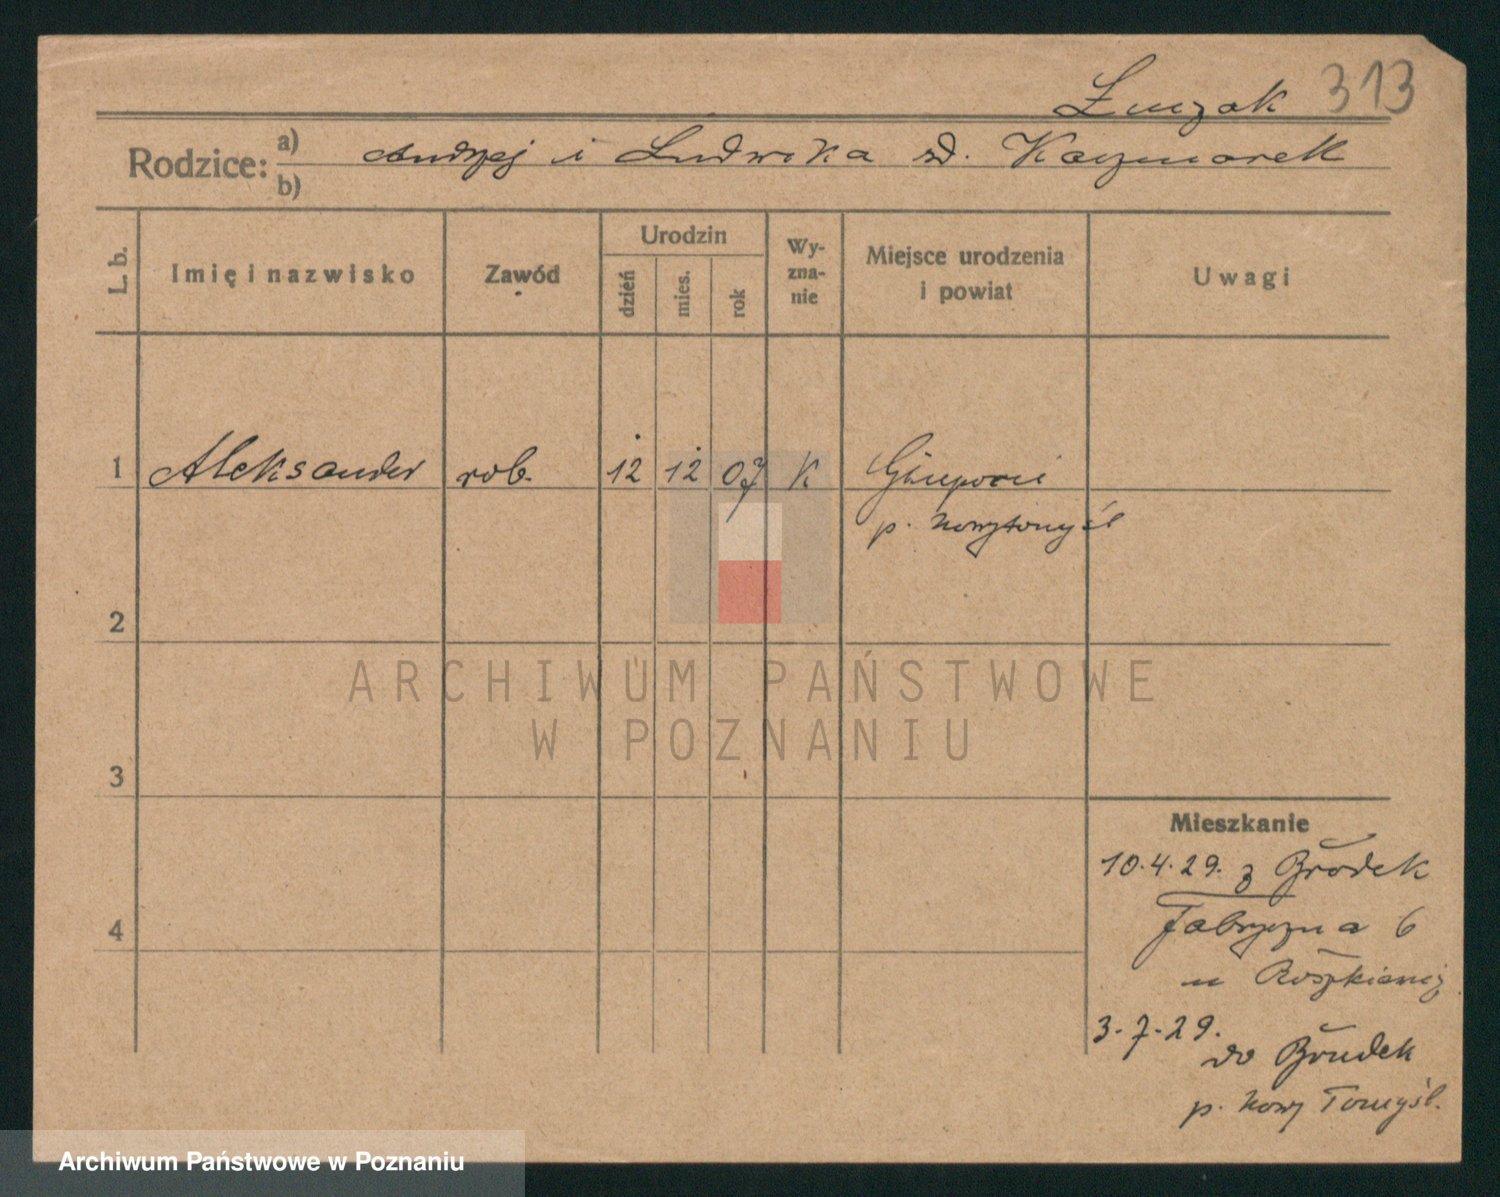 313
Rodzice: a) Andrzej i Ludwika zd. Kaczmarek
b)
L. b.
Imię i nazwisko
Zawód
Urodzin
dzień
mies.
rok
Wy-
zna-
nie
Miejsce urodzenia
i powiat
Uwagi
1 Aleksander rob. 12 12 07 K
p. Nowytomyśl
2
ARCHIWUM PAŃSTWOWE
W POZNANIU
3
Mieszkanie
10.4.29. z Brodek
Fabryczna 6
4
u
3.7.29.
do Brudek
p. Nowy Tomyśl.
Archiwum Państwowe w Poznaniu